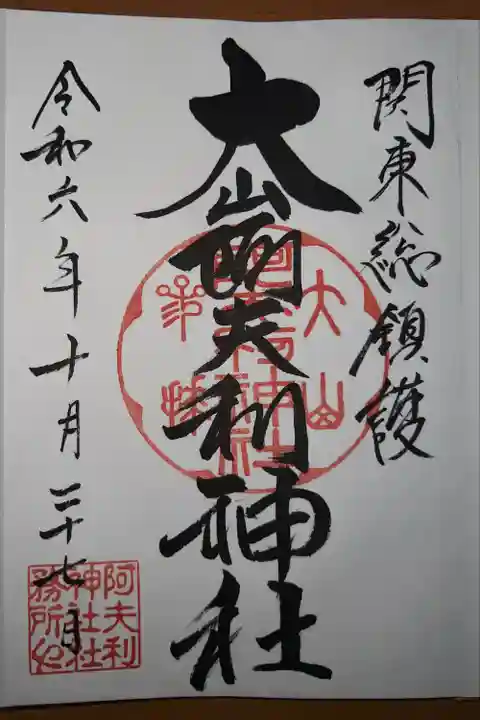 関東総鎮護
大山阿夫利神社
令和六年十月二十七日
大山
阿夫利神社
阿夫利
神社社
務所印